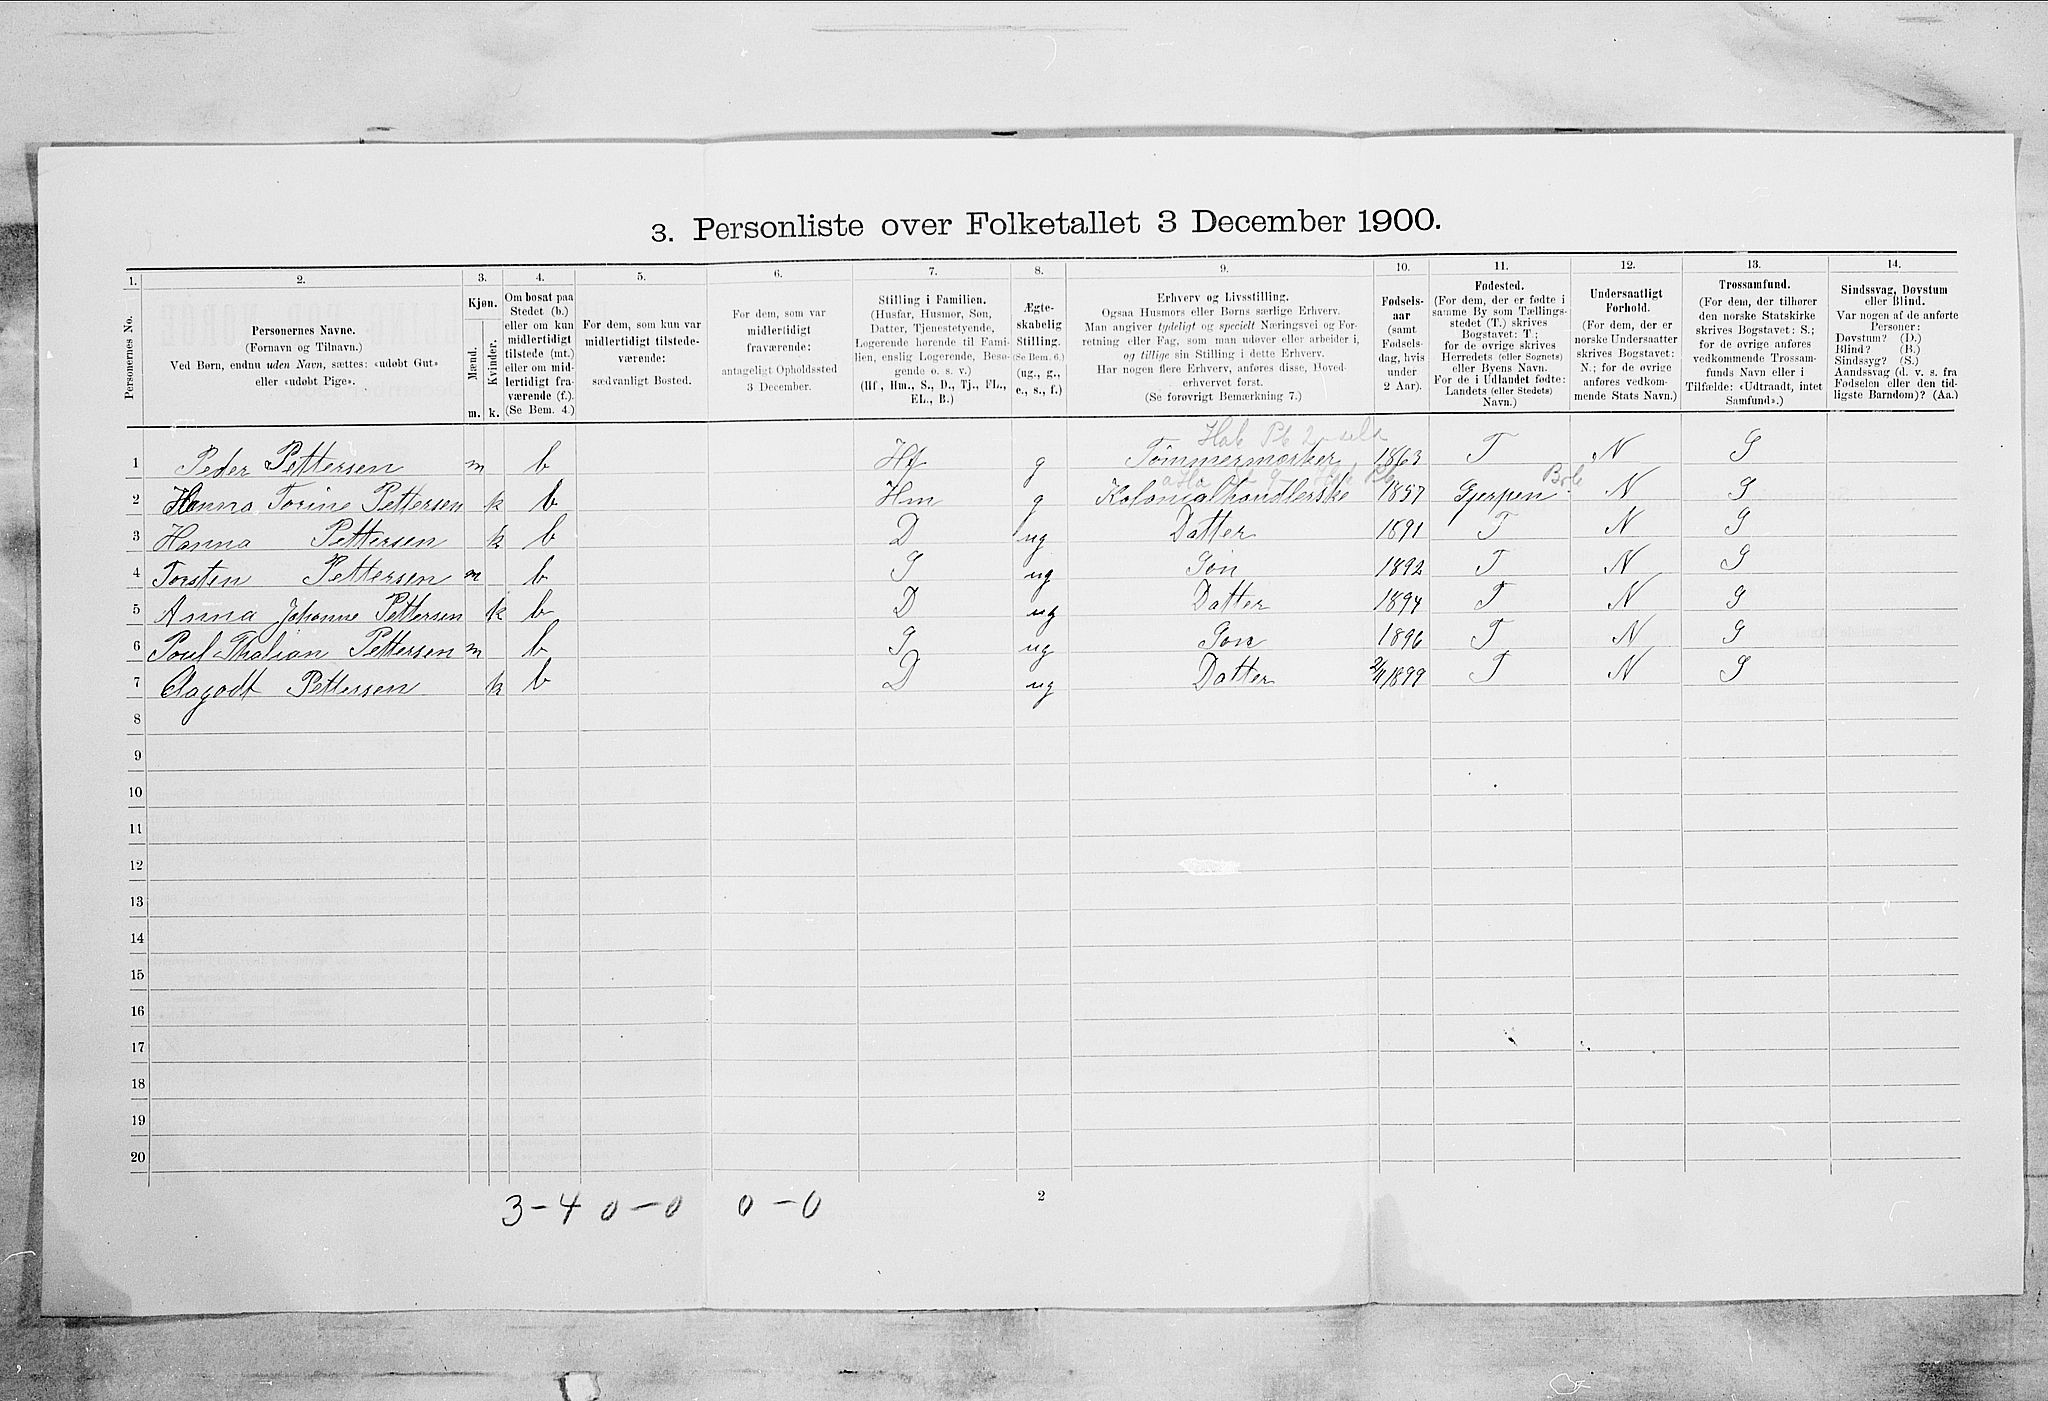 3. Personliste over Folketallet 3 December 1900.
1. 2. 3. 4. 5. 6. 7. 8. 9. 10. 11. 12. 13. 14.
Personernes No.
Personernes Navne.
(Fornavn og Tilnavn.)
Ved Børn, endnu uden Navn, sættes: «udøbt Gut»
eller «udøbt Pige».
Kjøn.
Mænd. Kvinder.
m. k.
Om bosat paa
Stedet (b.)
eller om kun
midlertidigt
tilstede (mt.)
eller om mid-
lertidigt fra-
værende (f.).
(Se Bem. 4.)
For dem, som kun var
midlertidigt tilstede-
værende:
sædvanligt Bosted.
For dem, som var
midlertidigt
fraværende:
antageligt Opholdssted
3 December.
Stilling i Familien.
(Husfar, Husmor, Søn,
Datter, Tjenestetyende,
Logerende hørende til Fami-
lien, enslig Logerende, Besø-
gende o. s. v.)
(Hf., Hm., S., D., Tj., FL.,
EL., B.)
Ægte-
skabelig
Stilling.
(Se Bem. 6.)
(ug., g.,
e., s., f.)
Erhverv og Livsstilling.
Ogsaa Husmors eller Børns særlige Erhverv.
Man angiver tydeligt og specielt Næringsvei og For-
retning eller Fag, som man udøver eller arbeider i,
og tillige sin Stilling i dette Erhverv.
Har nogen flere Erhverv, anføres disse, Hoved-
erhvervet først.
(Se forøvrigt Bemærkning 7.)
Fødsels-
aar
(samt
Fødsels-
dag, hvis
under
2 Aar).
Fødested.
(For dem, der er fødte i
samme By som Tællings-
stedet (T.) skrives
Bogstavet: T.;
for de øvrige skrives
Herredets (eller Sognets)
eller Byens Navn.
For de i Udlandet fødte:
Landets (eller Stedets)
Navn.)
Undersaatligt
Forhold.
(For dem, der er
norske Undersaatter
skrives Bogstavet:
N.; for de øvrige
anføres vedkom-
mende Stats Navn.)
Trossamfund.
(For dem, der tilhører
den norske Statskirke
skrives Bogstavet: S.;
for de øvrige anføres
vedkommende Trossam-
funds Navn eller i
Tilfælde: «Udtraadt, intet
Samfund».)
Sindssvag, Døvstum
eller Blind.
Var nogen af de anførte
Personer:
Døvstum? (D.)
Blind? (B.)
Sindssyg? (S.)
Aandssvag (d. v. s. fra
Fødselen eller den tid-
ligste Barndom)? (Aa.)
1 Peder Pettersen m b Hf g Tømmermærker 1863 T N S
2 Hanna Torine Pettersen k b Hm g Kolonialhandlerske 1857 Gjerpen N S
3 Hanna Pettersen k b D ug Datter 1891 T N S
4 Torsten Pettersen m b S ug Søn 1892 T N S
5 Anna Johanne Pettersen k b D ug Datter 1894 T N S
6 Poul Thalian Pettersen m b S ug Søn 1896 T N S
7 Aagodt Pettersen k b D ug Datter 2/11 1899 T N S
8
9
10
11
12
13
14
15
16
17
18
19
20
3-4 0-0 0-0
2